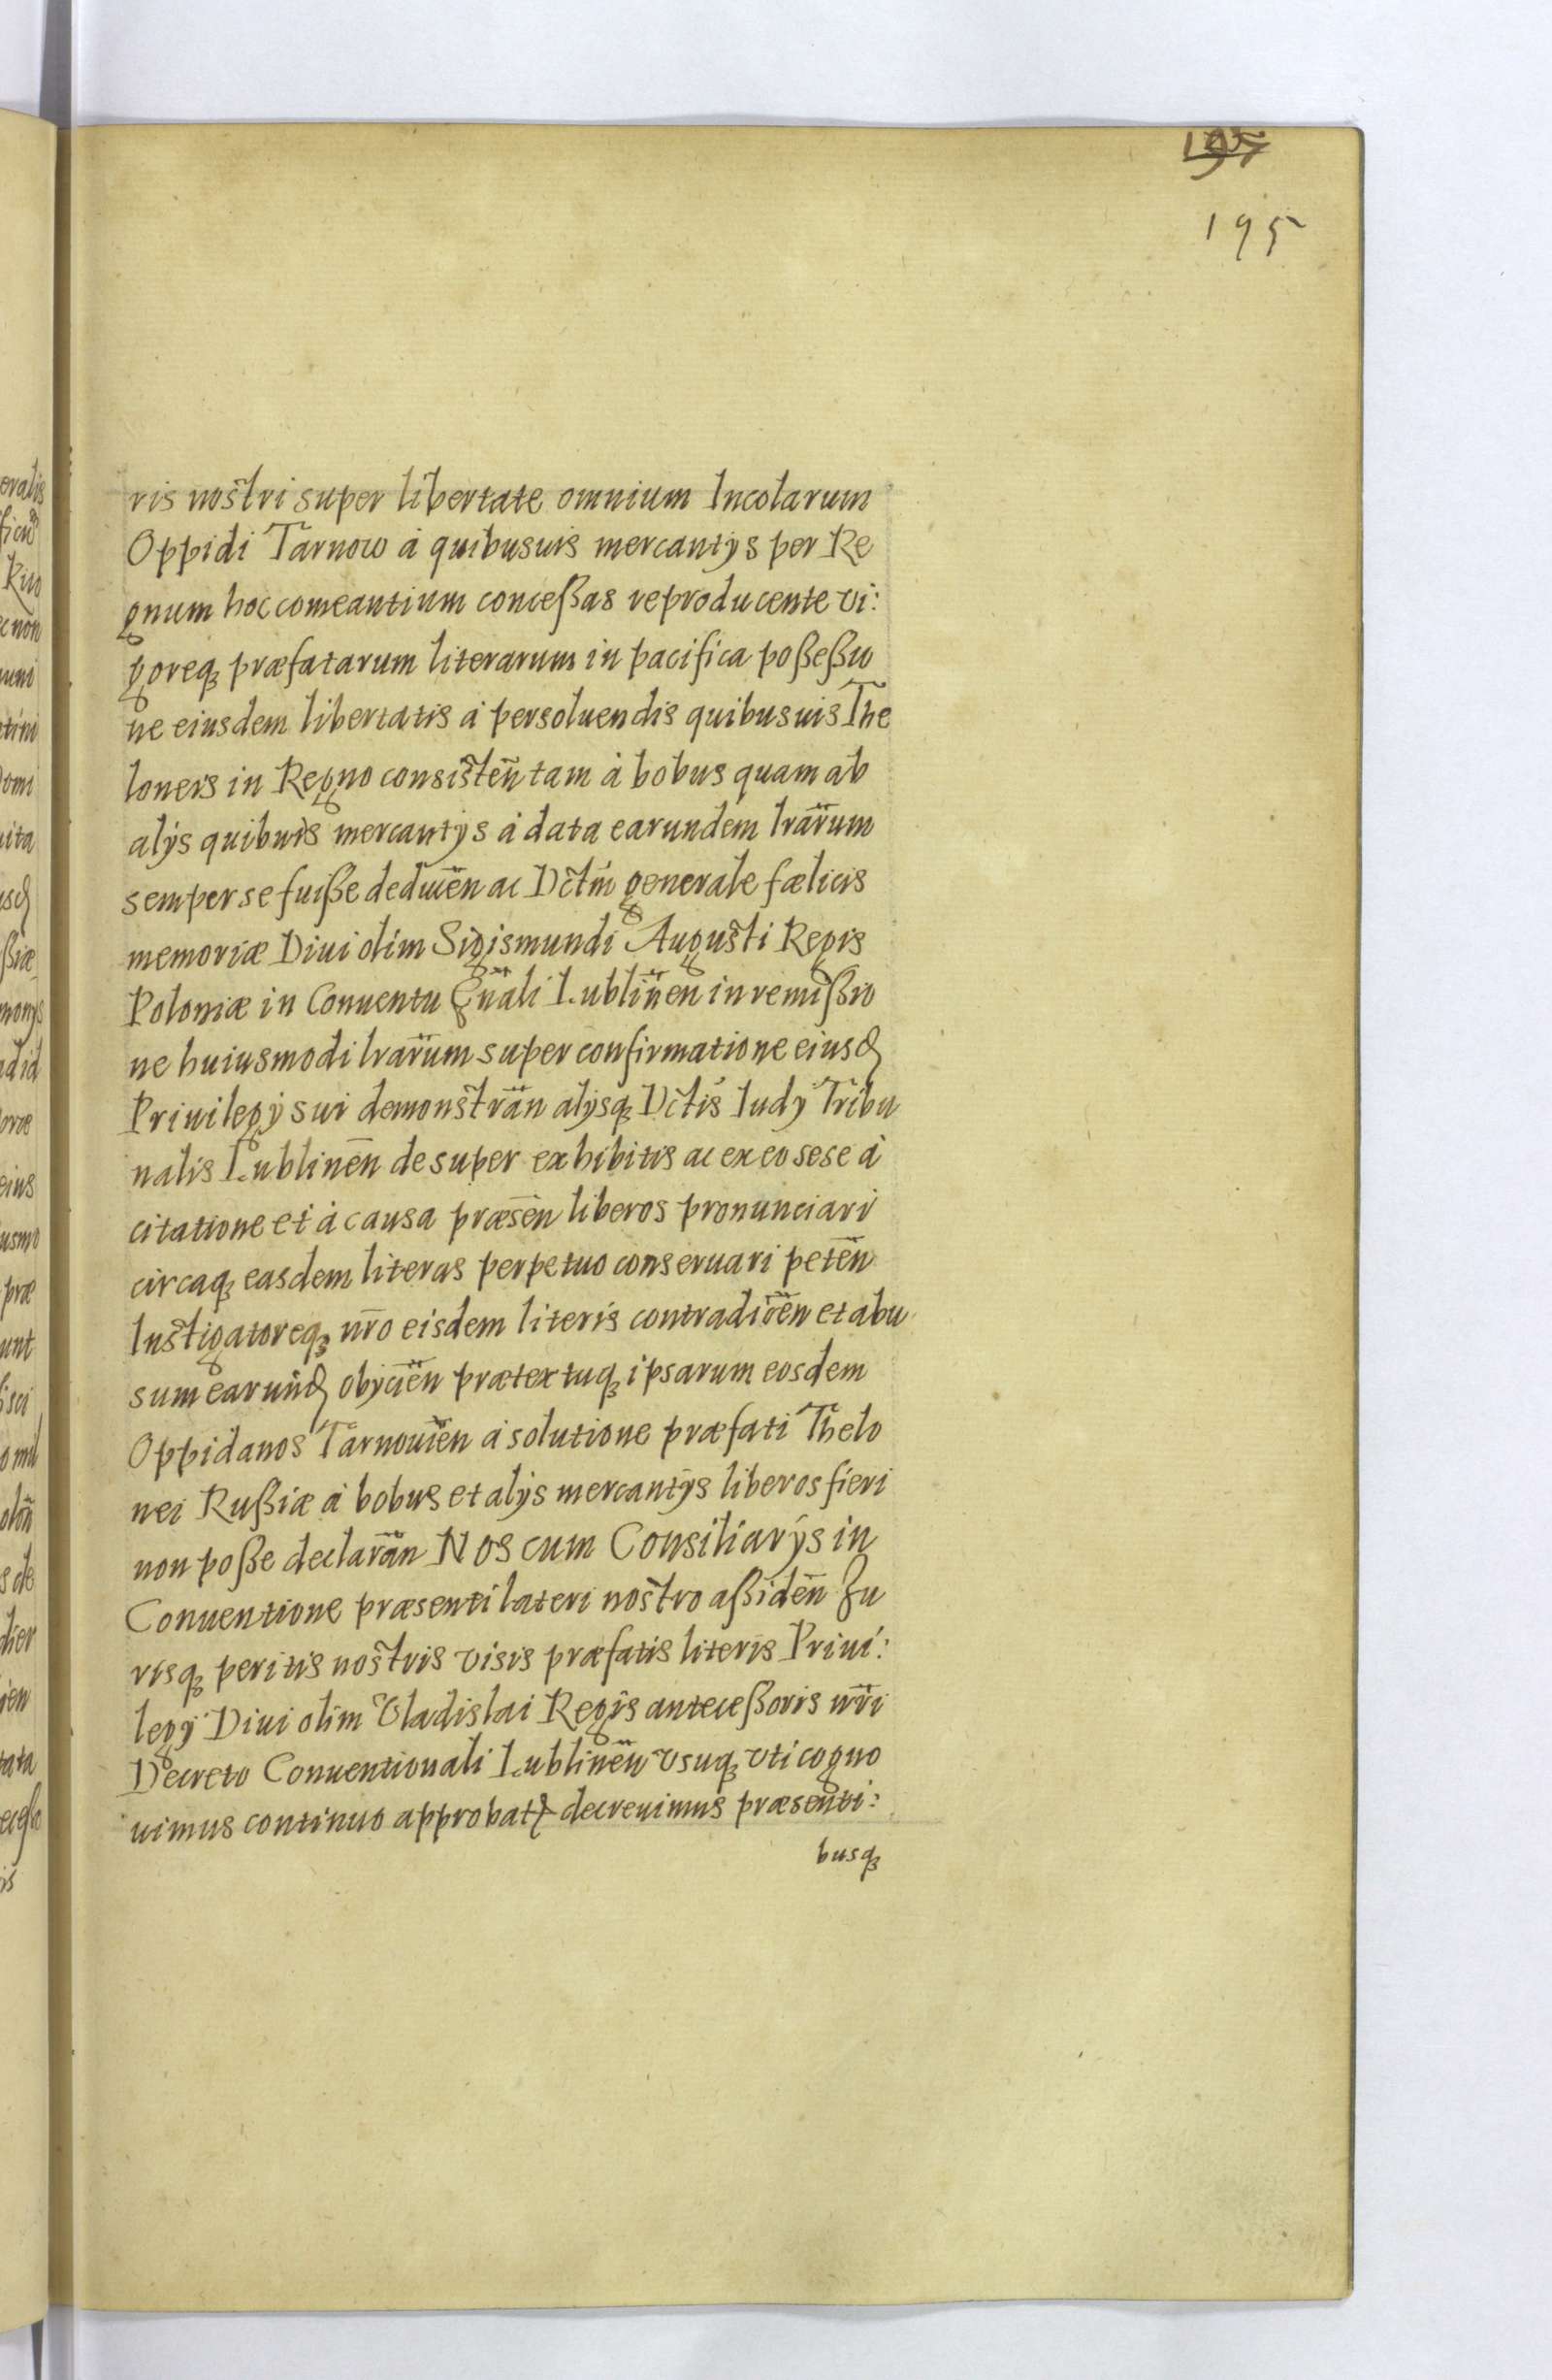 195
ris nostri super libertate omnium Incolarum
Oppidi Tarnow à quibusuis mercantijs per Re
gnum hoc comeantium conceßas reproducente vi:
goreq₃ præfatarum literarum in pacifica poßeßio
ne eiusdem libertatis à persoluendis quibusuis The
loneis in Regno consisten̄ tam à bobus quam ab
alijs quibuis mercantijs à data earundem lrārum
semper se fuiße deducen̄ ac Dctm̄ generale fœlicis
memoriæ Diui olim Sigismundi Augusti Regis
Poloniæ in Conuentu Gn̄ali Lublinen̄ in remißio
ne huiusmodi lrārum super confirmatione eiusd
Priuilegij sui demonstran̄ alijsq₃ Dctis̄ Iudij Tribu
nalis Lublinen̄ desuper exhibitis ac ex eo sese à
citatione et à causa præsen̄ liberos pronunciari
circaq₃ easdem literas perpetuo conseruari peten̄
Instigatoreq₃ nr̄o eisdem literis contradicen̄ et abu
sum earund obijcien̄ prætextuq₃ ipsarum eosdem
Oppidanos Tarnouien̄ à solutione præfati Thelo
nei Rußiæ à bobus et alijs mercantijs liberos fieri
non poße declaran̄ Nos cum Consiliarijs in
Conuentione præsenti lateri nostro aßiden̄ Iu
risq₃ peritis nostris visis præfatis literis Priui:
legij Diui olim Vladislai Regis anteceßoris nr̄i
Decreto Conuentionali Lublinen̄ vsuq₃ vti cogno
uimus continuo approbatꝭ decreuimus præsenti:
busq₃